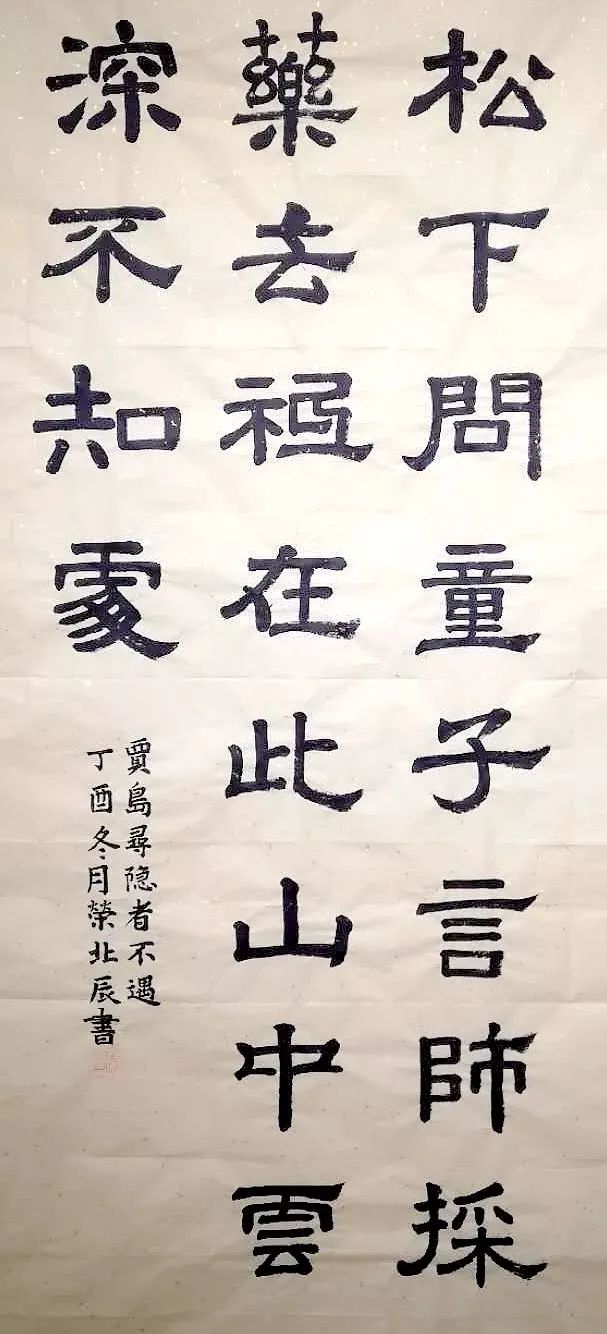 松下問童子言師採
藥去祗在此山中雲
深不知處
賈島尋隐者不遇
丁酉冬月榮北辰書